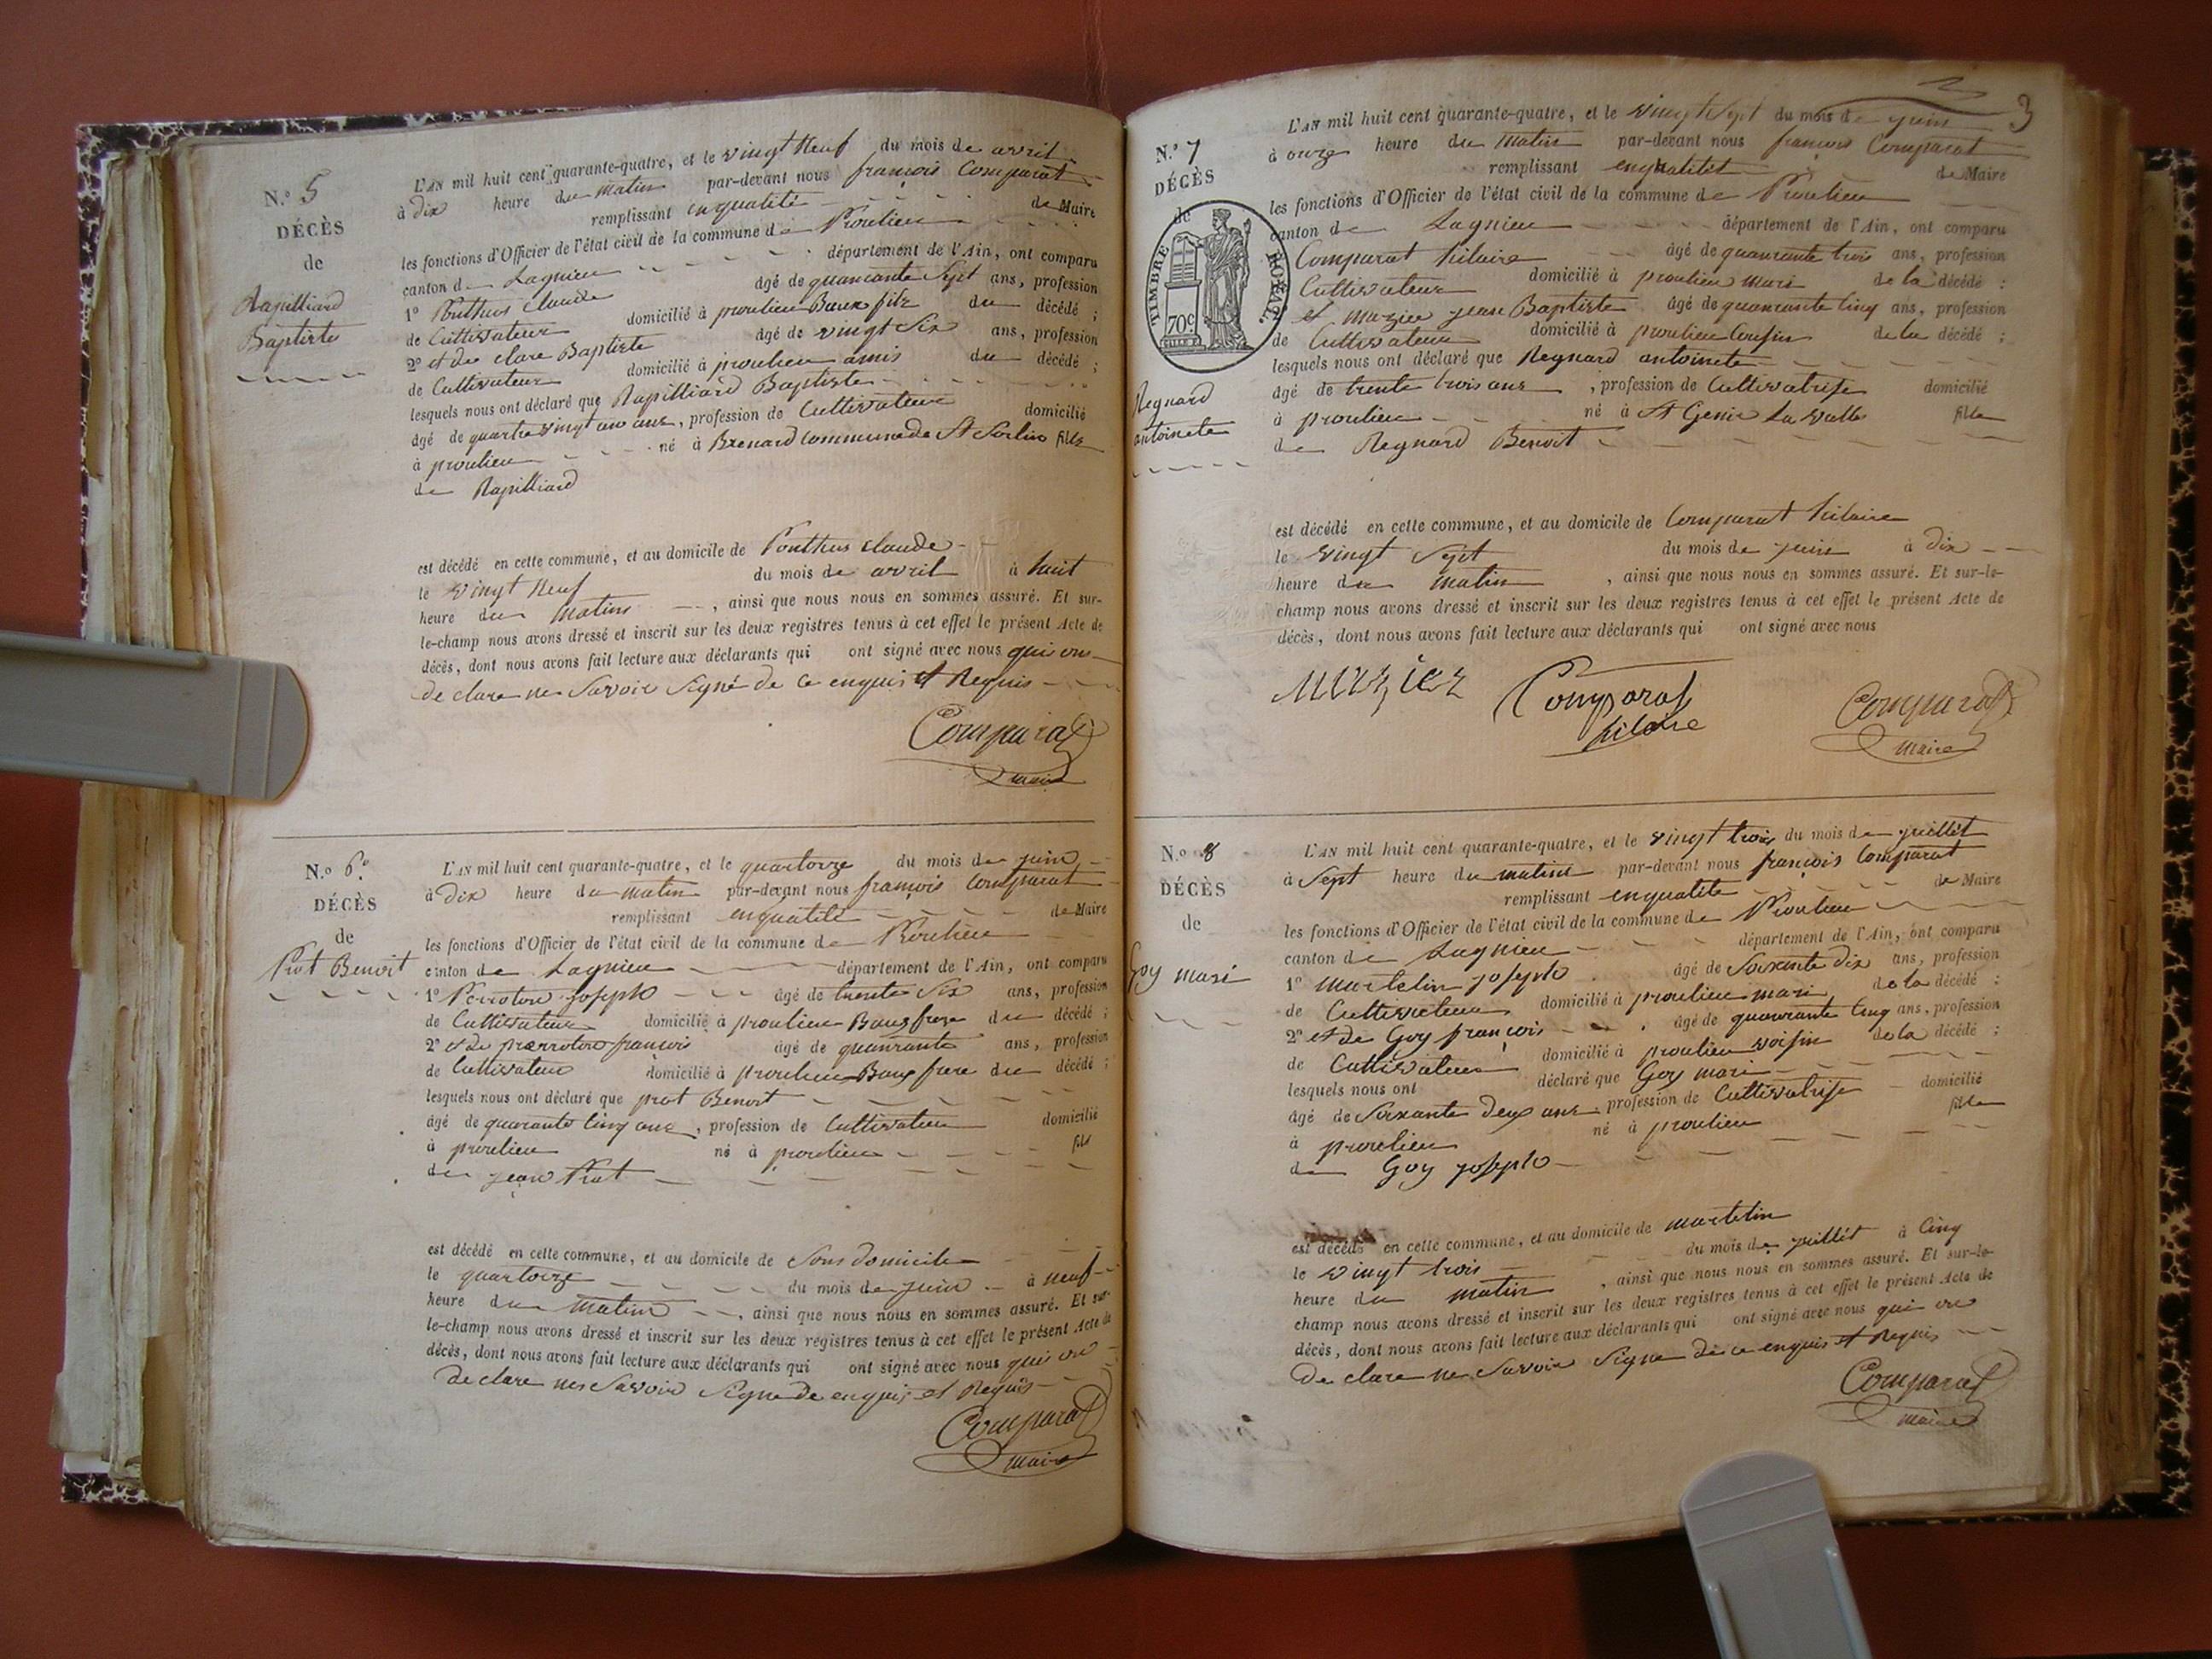 N.o 5
DÉCÈS
de
Rapilliard
Baptiste
L'AN mil huit cent quarante-quatre, et le vingt Neuf du mois de avril
à dix heure du matin par-devant nous françois Comparat
remplissant enqualité de Maire
les fonctions d'Officier de l'état civil de la commune de Proulieu
canton de Lagnieu département de l'Ain, ont comparu
1o Ponthus Claude âgé de quarante Sept ans, profession
de Cultivateur domicilié à proulieu Baux fils du décédé ;
2o et de clare Baptiste âgé de vingt Six ans, profession
de Cultivateur domicilié à proulieu amis du décédé ;
lesquels nous ont déclaré que Rapilliard Baptiste
âgé de quartre vingt un ans, profession de Cultivateur domicilié
à proulieu né à Brenard commune de St Sorlin fils
de Rapilliard
est décédé en cette commune, et au domicile de Ponthus claude
le vingt Neuf du mois de avril à huit
heure du matins, ainsi que nous nous en sommes assuré. Et sur-
le-champ nous avons dressé et inscrit sur les deux registres tenus à cet effet le présent Acte de
décès, dont nous avons fait lecture aux déclarants qui ont signé avec nous quis ons
de clare ne Savoir Signé de ce enquis et Requis
Comparat
maire
N.o 6.o
DÉCÈS
de
Prat Benoit
L'AN mil huit cent quarante-quatre, et le quartorze du mois de juin
à dix heure du matin par-devant nous françois Comparat
remplissant enqualité de Maire
les fonctions d'Officier de l'état civil de la commune de Proulieu
canton de Lagnieu département de l'Ain, ont comparu
1o Perroton joseph âgé de trente Six ans, profession
de Cultivateur domicilié à proulieu Baux frere du décédé ;
2o et de prerroton françois âgé de quanrante ans, profession
de Cultivateur domicilié à proulieu Baux frere du décédé ;
lesquels nous ont déclaré que prat Benoit
âgé de quarante Cinq ans, profession de Cultivateur domicilié
à proulieu né à proulieu fils
de jean Prat
est décédé en cette commune, et au domicile de Sons domicile
le quartorze du mois de juin à neuf
heure du matin, ainsi que nous nous en sommes assuré. Et sur-
le-champ nous avons dressé et inscrit sur les deux registres tenus à cet effet le présent Acte de
décès, dont nous avons fait lecture aux déclarants qui ont signé avec nous quis on
de clare nes Savoir Signe de enquis et Requis
Comparat
maire
3
N.o 7
DÉCÈS
de
TIMBRE ROYAL
70c
Regnard
antoinete
L'AN mil huit cent quarante-quatre, et le vingt Sept du mois de juin
à onze heure du matin par-devant nous françois Comparat
remplissant enqualitet de Maire
les fonctions d'Officier de l'état civil de la commune de Proulieu
canton de Lagnieu département de l'Ain, ont comparu
Comparat hilaire âgé de quanrante trois ans, profession
Cultivateur domicilié à proulieu mari de la décédé ;
et Mazier jean Baptiste âgé de quanrante Cinq ans, profession
de Cultivateur domicilié à proulieu Cousin de la décédé ;
lesquels nous ont déclaré que Regnard antoinete
âgé de trente trois ans, profession de Cultivatrise domicilié
à proulieu né à St Genie La Valle fille
de Regnard Benoit
est décédé en cette commune, et au domicile de Comparat hilaire
le vingt Sept du mois de juin à dix
heure du matin, ainsi que nous nous en sommes assuré. Et sur-le-
champ nous avons dressé et inscrit sur les deux registres tenus à cet effet le présent Acte de
décès, dont nous avons fait lecture aux déclarants qui ont signé avec nous
Comparat
hilaire
Comparat
maire
N.o 8
DÉCÈS
de
Goy mari
L'AN mil huit cent quarante-quatre, et le vingt trois du mois de juillet
à Sept heure du matin par-devant nous françois Comparat
remplissant enqualite de Maire
les fonctions d'Officier de l'état civil de la commune de Proulieu
canton de Lagnieu département de l'Ain, ont comparu
1o martelin joseph âgé de Soixante dix ans, profession
de Cultivateur domicilié à proulieu mari de la décédé ;
2o et de Goy françois âgé de quanrante Cinq ans, profession
de Cultivateur domicilié à proulieu voisin de la décédé ;
lesquels nous ont déclaré que Goy mari
âgé de Soixante deux ans profession de Cultivatrise domicilié
à proulieu né à proulieu fille
de Goy joseph
est décédé en cette commune, et au domicile de martelin
le vingt trois du mois de juillet à Cinq
heure du matin, ainsi que nous nous en sommes assuré. Et sur-le-
champ nous avons dressé et inscrit sur les deux registres tenus à cet effet le présent Acte de
décès, dont nous avons fait lecture aux déclarants qui ont signé avec nous qui on
de clare ne Savoir Signe de ce enquis et Requis
Comparat
maire